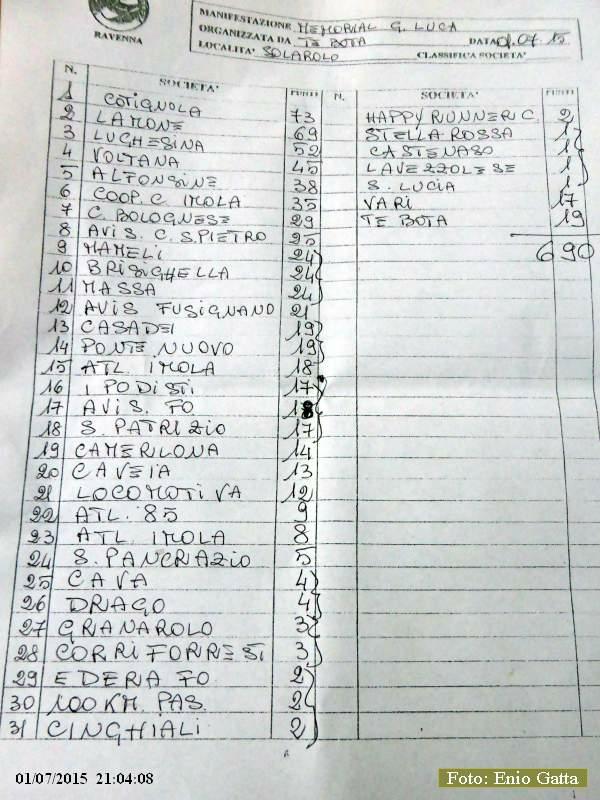 RAVENNA
MANIFESTAZIONE MEMORIAL G. LUCA
ORGANIZZATA DA TE BOTA DATA 01.07.15
LOCALITA' SOLAROLO CLASSIFICA SOCIETA'
N. SOCIETA' PUNTI N. SOCIETA' PUNTI
1 COTIGNOLA 73
2 LAMONE 69
3 LUGHESINA 52
4 VOLTANA 45
5 ALFONSINE 38
6 COOP. C. IMOLA 35
7 C. BOLOGNESE 29
8 AVIS. C. S. PIETRO 25
9 MAMELI 24
10 BRISIGHELLA 24
11 MASSA 24
12 AVIS FUSIGNANO 21
13 CASADEI 19
14 PONTE NUOVO 19
15 ATL. IMOLA 18
16 I PODISTI 17
17 AVIS. FO
18 S. PATRIZIO 17
19 CAMERLONA 14
20 CAVEIA 13
21 LOCOMOTIVA 12
22 ATL. 85 9
23 ATL. IMOLA 8
24 S. PANCRAZIO 5
25 CAVA 4
26 DRAGO 4
27 GRANAROLO 3
28 CORRIFORREST 3
29 EDERA FO 2
30 100 KM. PAS. 2
31 CINGHIALI 2
HAPPY RUNNER C. 2
STELLA ROSSA 1
CASTENASO 1
LAVEZZOLESE 1
S. LUCIA 1
VARI 17
TE BOTA 19
690
01/07/2015 21:04:08
Foto: Enio Gatta